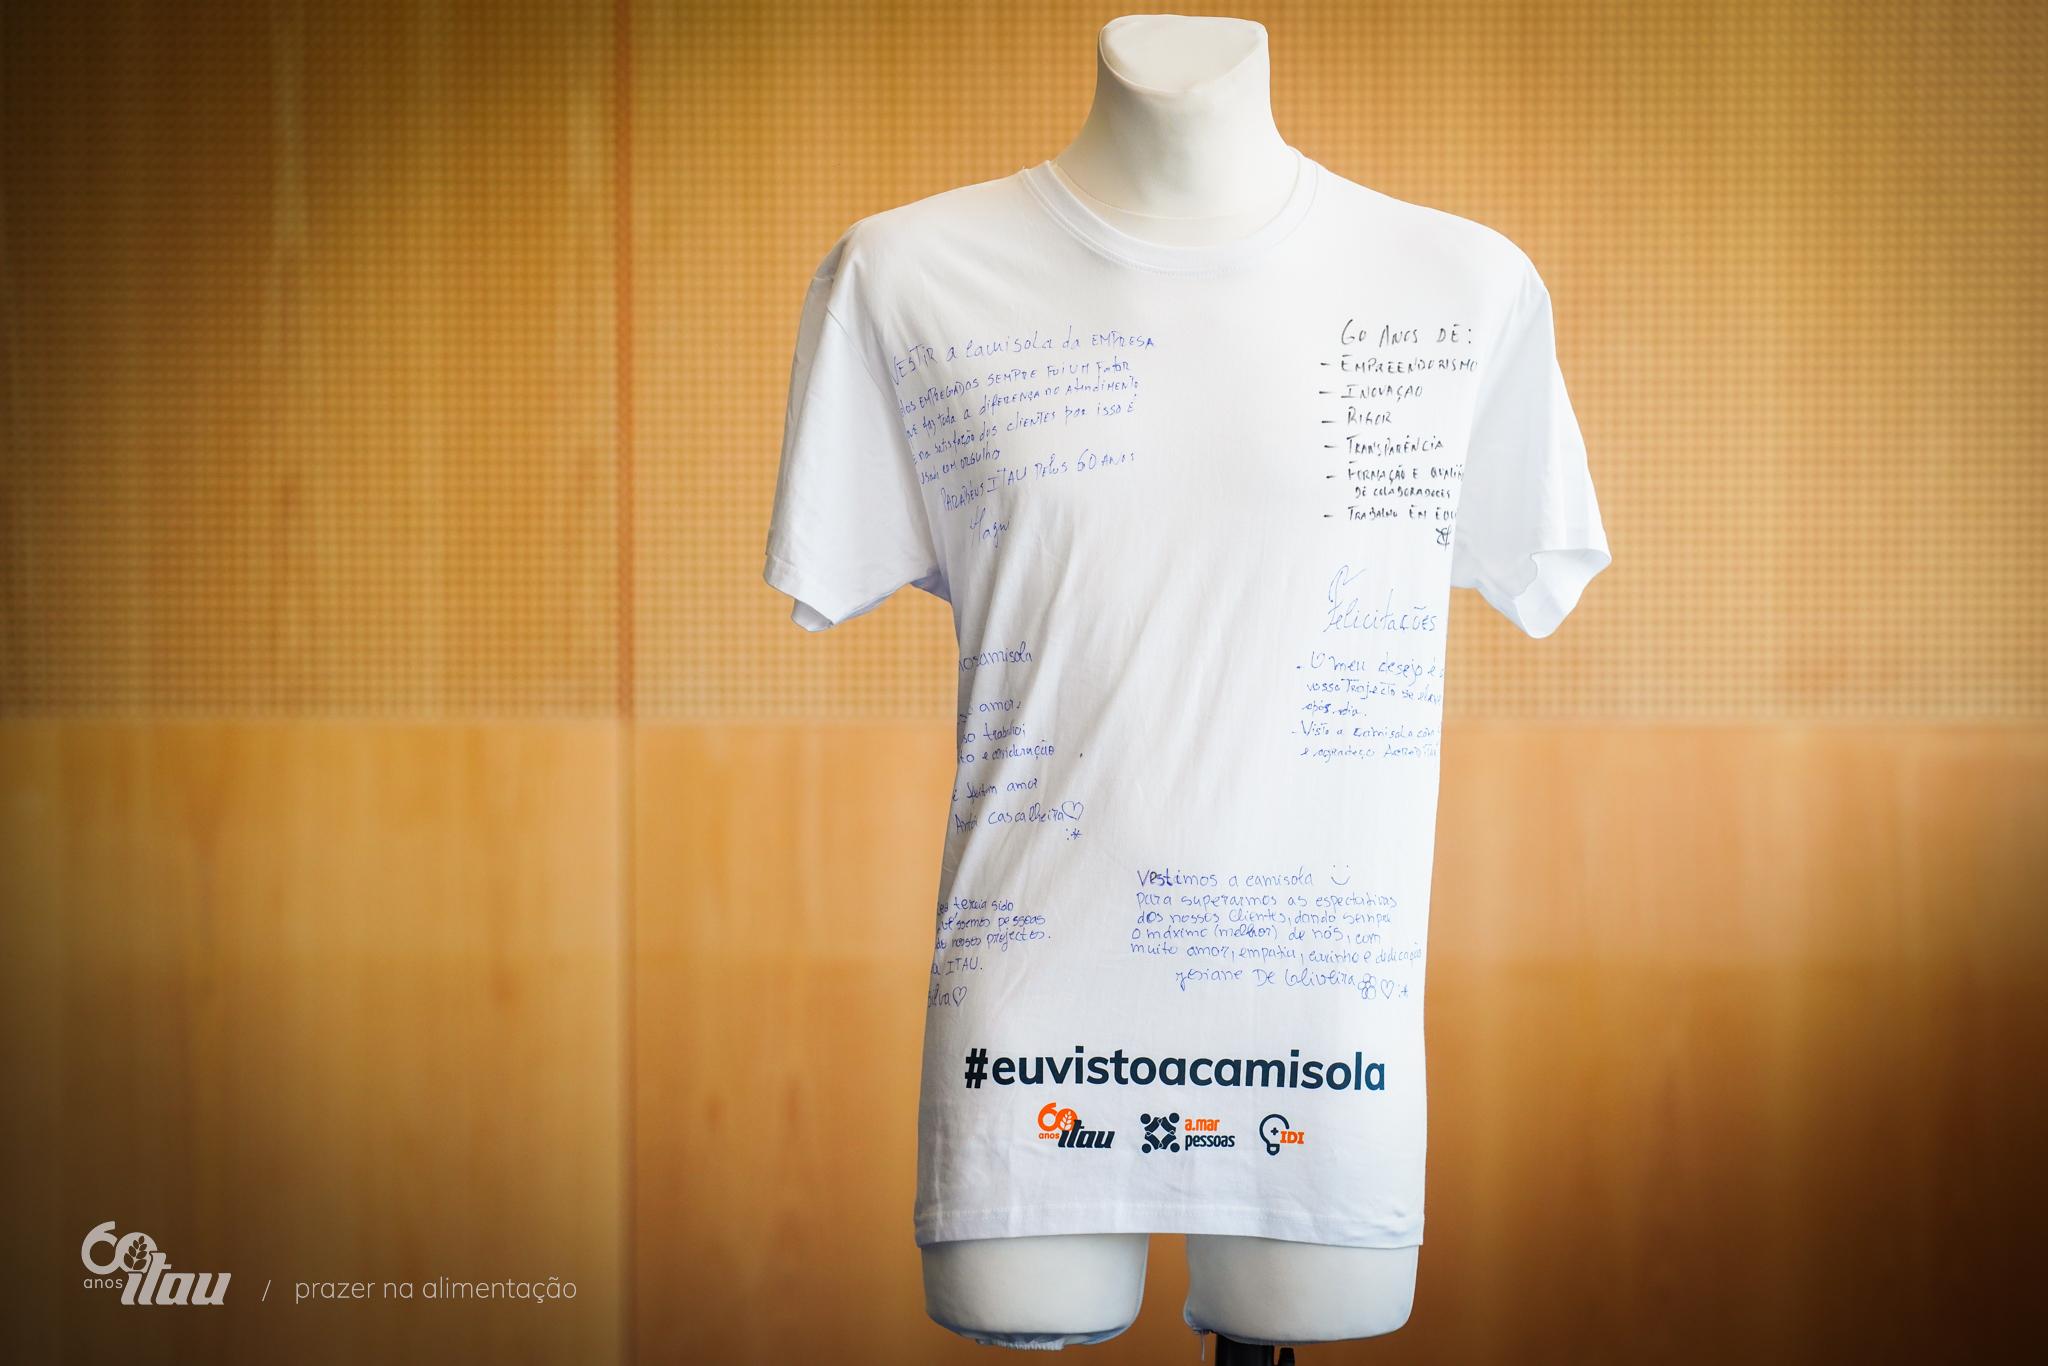 VESTIR a camisola da EMPRESA
dos EMPREGADOS SEMPRE FOI UM Fator
que faz toda a diferença no Atendimento
E na satisfação dos clientes por isso é
usada com orgulho
PARABÉNS ITAU PELOS 60 ANOS
60 ANOS DE:
- EMPREENDORISMO
- INOVAÇÃO
- RIGOR
- TRANSPARÊNCIA
- FORMAÇÃO E
DE COLABORADORES
- TRABALHO EM
Felicitações
- O meu desejo é
vosso Trajecto se
após dia.
- Visto a camisola com
e agradeço
camisola
amor,
trabalho
to e consideração
é amor
Cascalheira ♡
:*
sido
pessoas
nossos projectos.
ITAU.
Silva ♡
Vestimos a camisola
para superarmos as espectativas
dos nossos Clientes, dando sempre
o máximo (melhor) de nós, com
muito amor, empatia, carinho e dedicação
Jesiane De Oliveira ♡ :*
#euvistoacamisola
60 anos itau
a.mar
pessoas
IDI
60 anos itau / prazer na alimentação